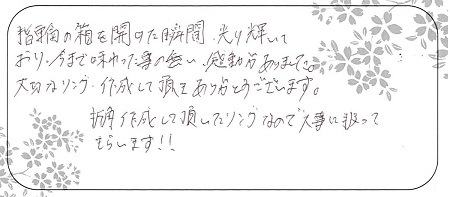 指輪の箱を開けた瞬間、光り輝いて
おり、今まで味わった事の無い、感動がありました。
大切なリング、作成して頂きありがとうございます。
折角作成して頂いたリングなので大事に扱って
もらいます!!